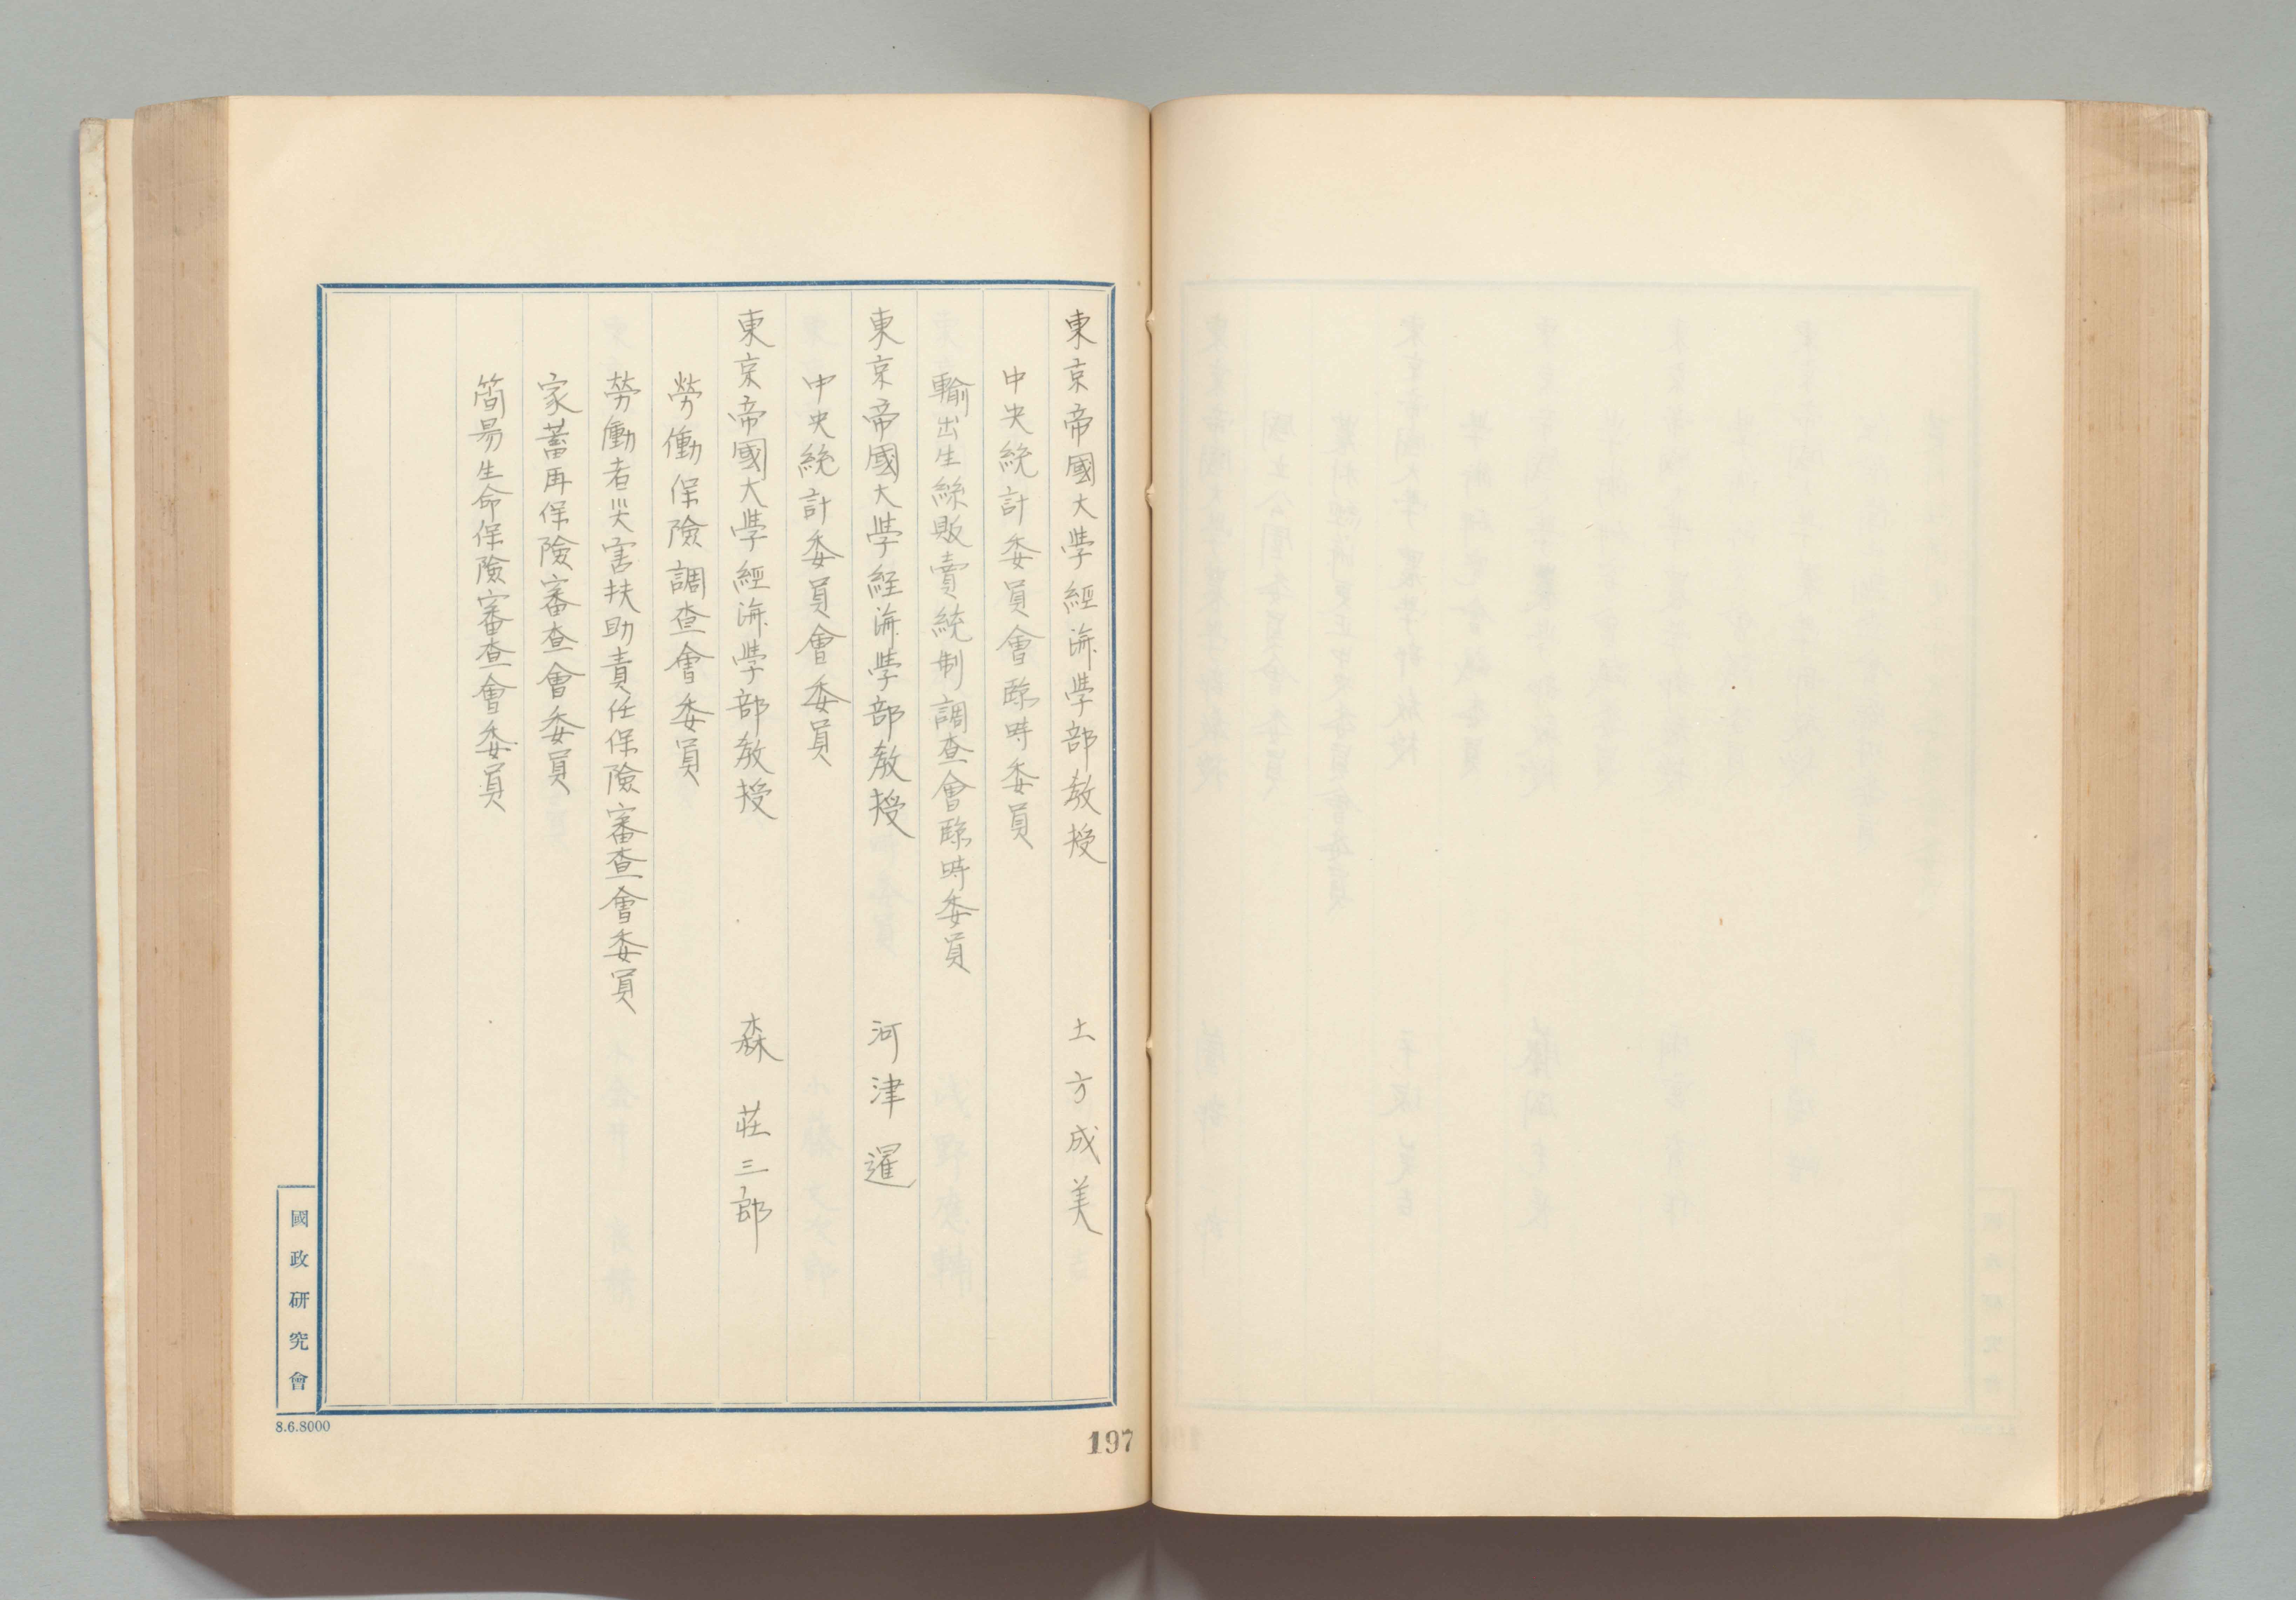 東京帝國大學經濟學部教授 土方成美
中央統計委員會臨時委員
輸出生絲販賣統制調査會臨時委員
東京帝國大學経濟學部教授 河津暹
中央統計委員會委員
東京帝國大學經濟學部教授 森荘三郎
勞働保險調査會委員
勞働者災害扶助責任保險審査會委員
家蓄再保險審査會委員
簡易生命保險審査會委員
國政研究會
8.6.8000
197